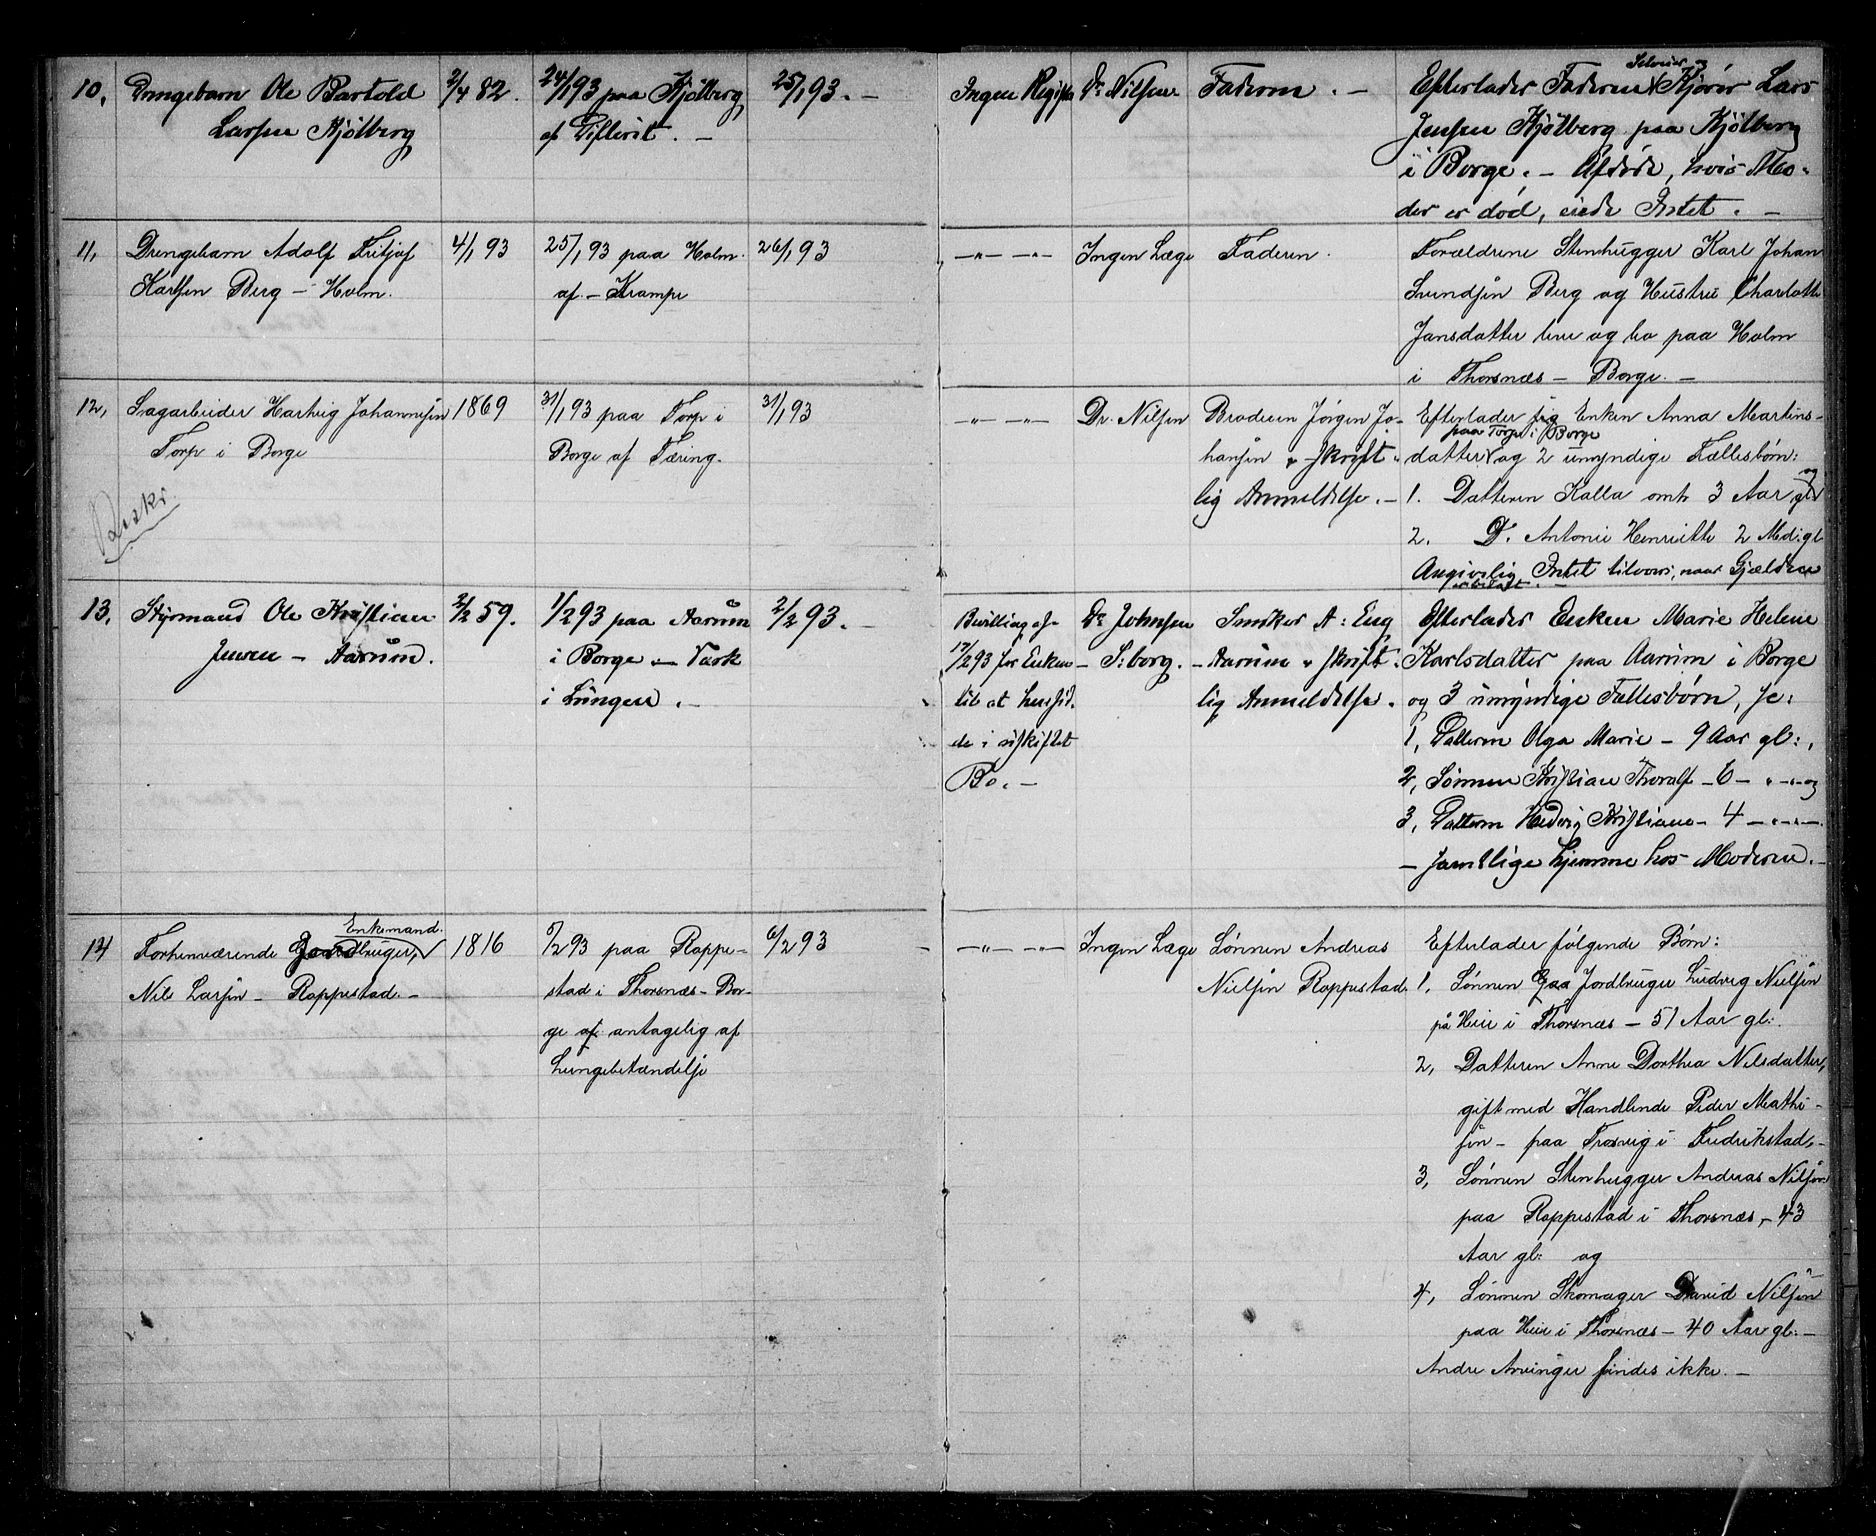 10, Drengebarn Ole Bartold
Larsen Kjölberg
2/4 82.
24/1 93 paa Kjölberg
af Difterit. –
25/1 93. –
Ingen Registr
Dr Nilsen
Faderen. –
Selveier og
Efterlader Faderen Kjører Lars
Jensen Kjölberg paa Kjölberg
i Borge. – Afdøde, hvis Mo-
der er død, eiede Intet. –
11, Drengebarn Adolf Fritjof
Karlsen Berg – Holm.
4/1 93
25/1 93 paa Holm
af – Krampe
26/1 93
–"– –"–
Ingen Læge
Faderen.
Forældrene Stenhugger Karl Johan
Svendsen Berg og Hustru Charlotte
Jansdatter leve og bo paa Holm
i Thorsnæs – Borge. –
12, Sagarbeider Hartvig Johannesen
Torp i Borge
1869
31/1 93 paa Torp i
Borge af Tæring.
31/1 93
–"– –"–
Dr. Nilsen
Broderen Jørgen Jo-
hansen skrift-
lig Anmeldelse. –
Efterlader sig Enken Anna Martins-
paa Torp i Borge
datter og 2 umyndige Fællesbørn:
1. Datteren Kalla omtr 3 Aar gl og
2. D. Antonie Henriette 2 Md. gl
Angivelig Intet tilovers, naar Gjælden
er betalt. –
13, Styrmand Ole Kristian
Jensen – Aarum.
2/2 59.
1/2 93 paa Aarum
i Borge – Værk
i Lungen. –
2/2 93. –
Bevilling af
17/2 93 for Enken
til at hensid-
de i uskiftet
Bo. –
Dr Johnsen
– S:borg. –
Snedker A: Eng
Aarum skrift-
lig Anmeldelse.
Efterlader Enken Marie Helene
Karlsdatter paa Aarum i Borge
og 3 umyndige Fællesbørn, se:
1, Datteren Olga Marie – 9 Aar gl:,
2, Sønnen Kristian Thoralf – 6 – " – " – og
3, Datteren Hedvig Kristiane – 4 – " – " –
– samtlige hjemme hos Moderen. –
14 Forhenværende Gaardbruger, Enkemand.
Nils Larsen – Roppestad. –
1816
5/2 93 paa Roppe-
stad i Thorsnæs – Bor-
ge af antagelig af
Lungebetændelse
6/2 93
–"– –"–
Ingen Læge
Sønnen Andreas
Nielsen Roppestad.
Efterlader følgende Børn:
1, Sønnen Gaa Jordbruger Ludvig Nielsen
på Heie i Thorsnæs – 51 Aar gl:.
2, Datteren Anne Dorthea Nilsdatter,
gift med Handlende Peder Mathi-
sen – paa Trosvig i Fredrikstad, –
3, Sønnen Stenhugger Andreas Nilsen
paa Roppestad i Thorsnæs, – 43
Aar gl: og
4, Sønnen Skomager David Nilsen
paa Heie i Thorsnæs – 40 Aar gl: –
Andre Arvinger findes ikke. –